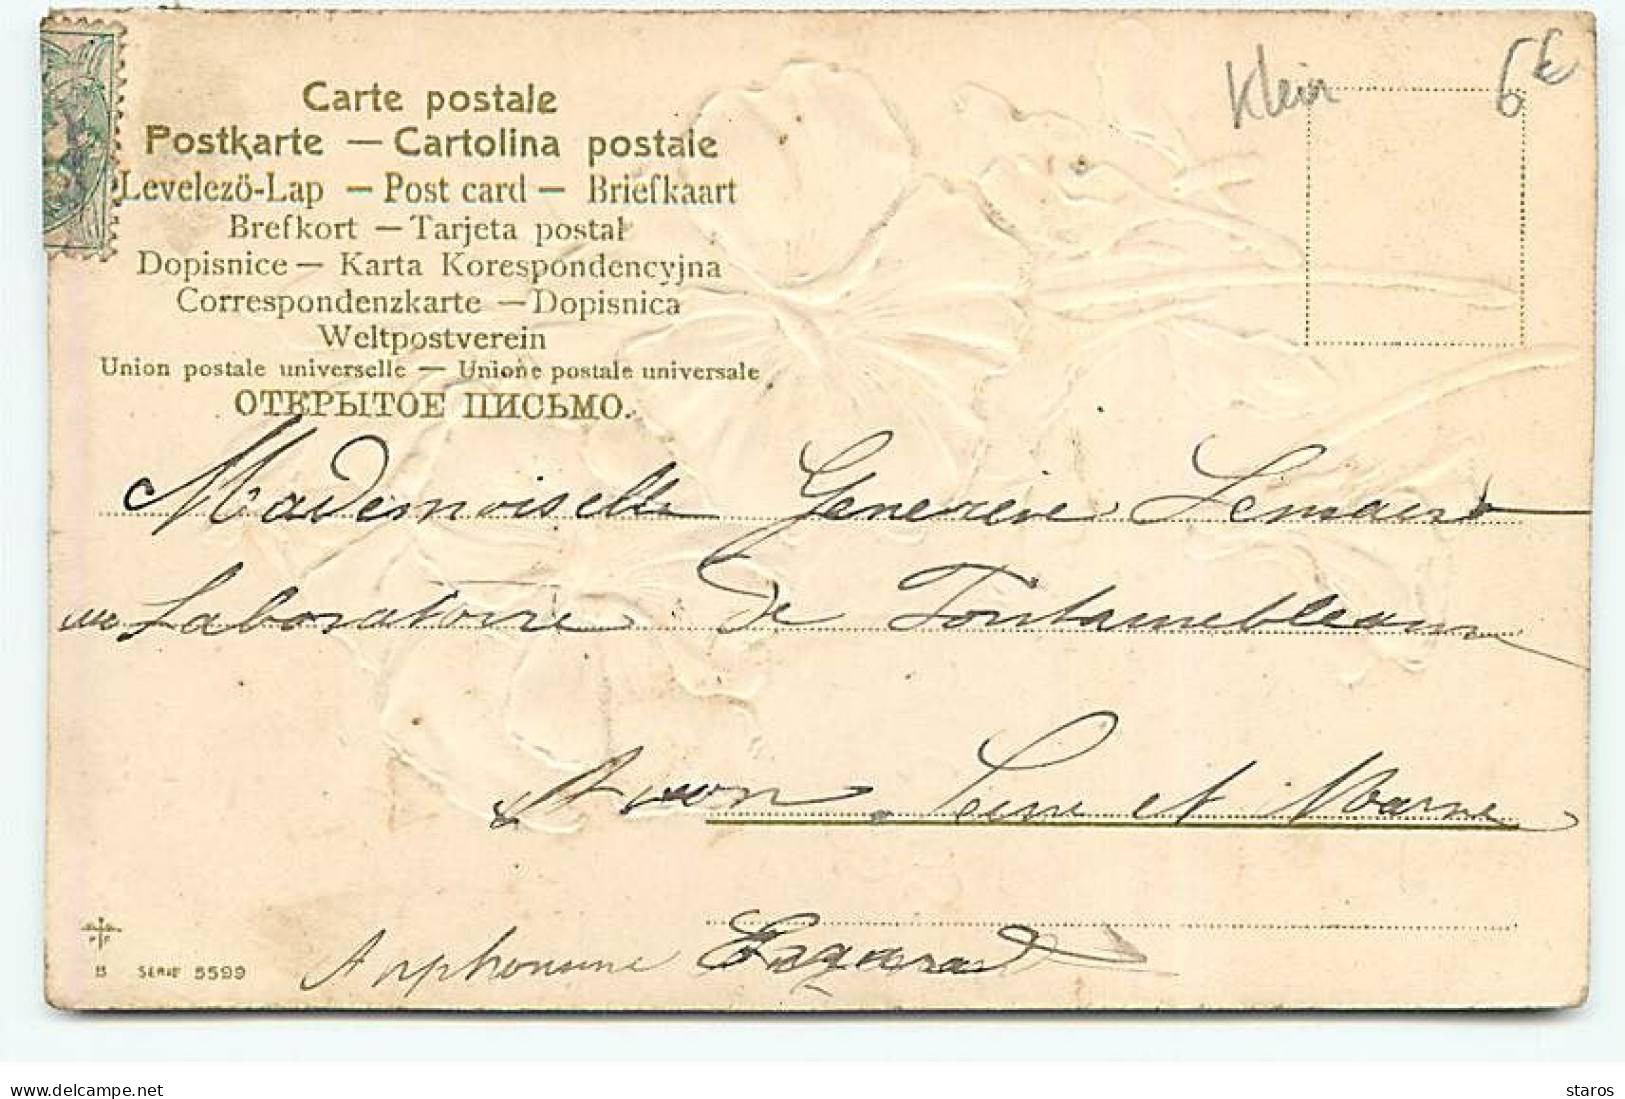 Carte postale
Postkarte — Cartolina postale
Levelezö-Lap — Post card — Briefkaart
Brefkort — Tarjeta postal
Dopisnice — Karta Korespondencyjna
Correspondenzkarte — Dopisnica
Weltpostverein
Union postale universelle — Unione postale universale
ОТКРЫТОЕ ПИСЬМО.
Klein
6€
Mademoiselle Genevieve Lemaire
au Laboratoire de Fontainebleau
Avon. Seine et Marne
B SERIE 5599
delcampe.net
staros